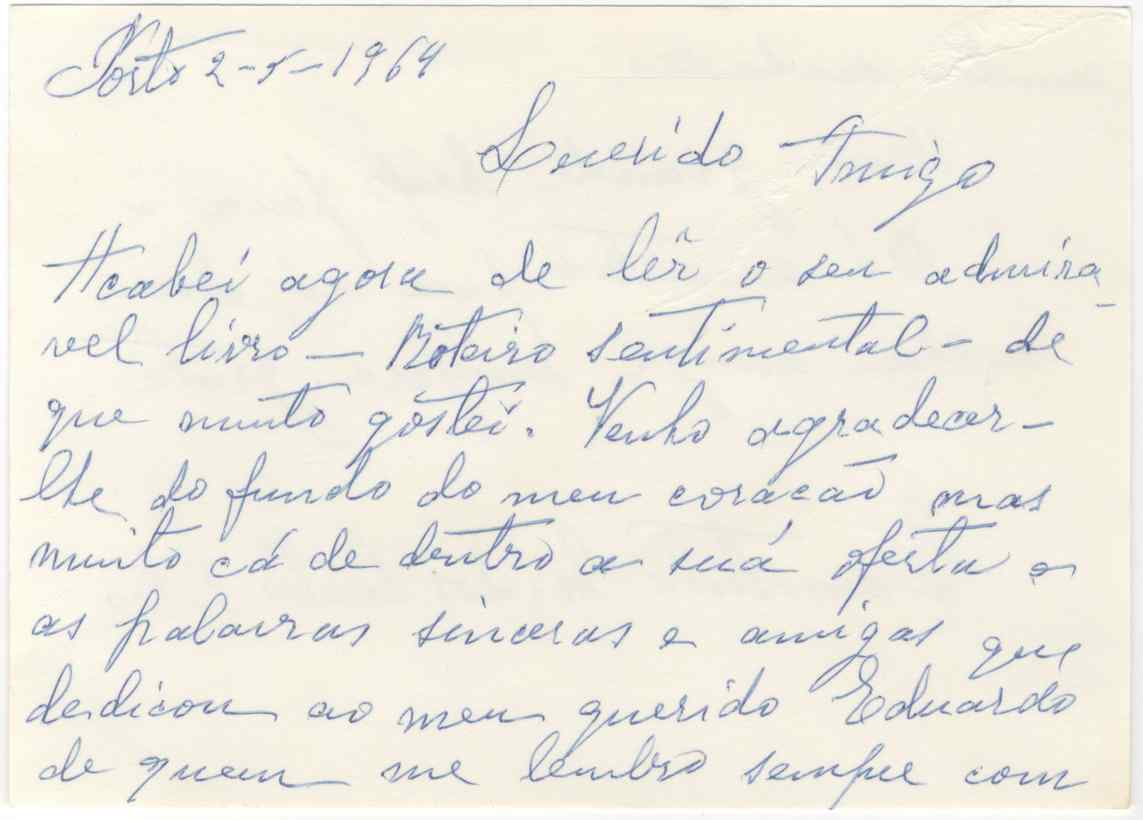 Porto 2-5-1964
Querido Amigo
Acabei agora de lêr o seu admira-
vel livro — Roteiro sentimental — de
que muito gostei. Venho agradecer-
lhe do fundo do meu coração mas
muito cá de dentro a suá oferta e
as palavras sinceras e amigas que
dedicou ao meu querido Eduardo
de quem me lembro sempre com